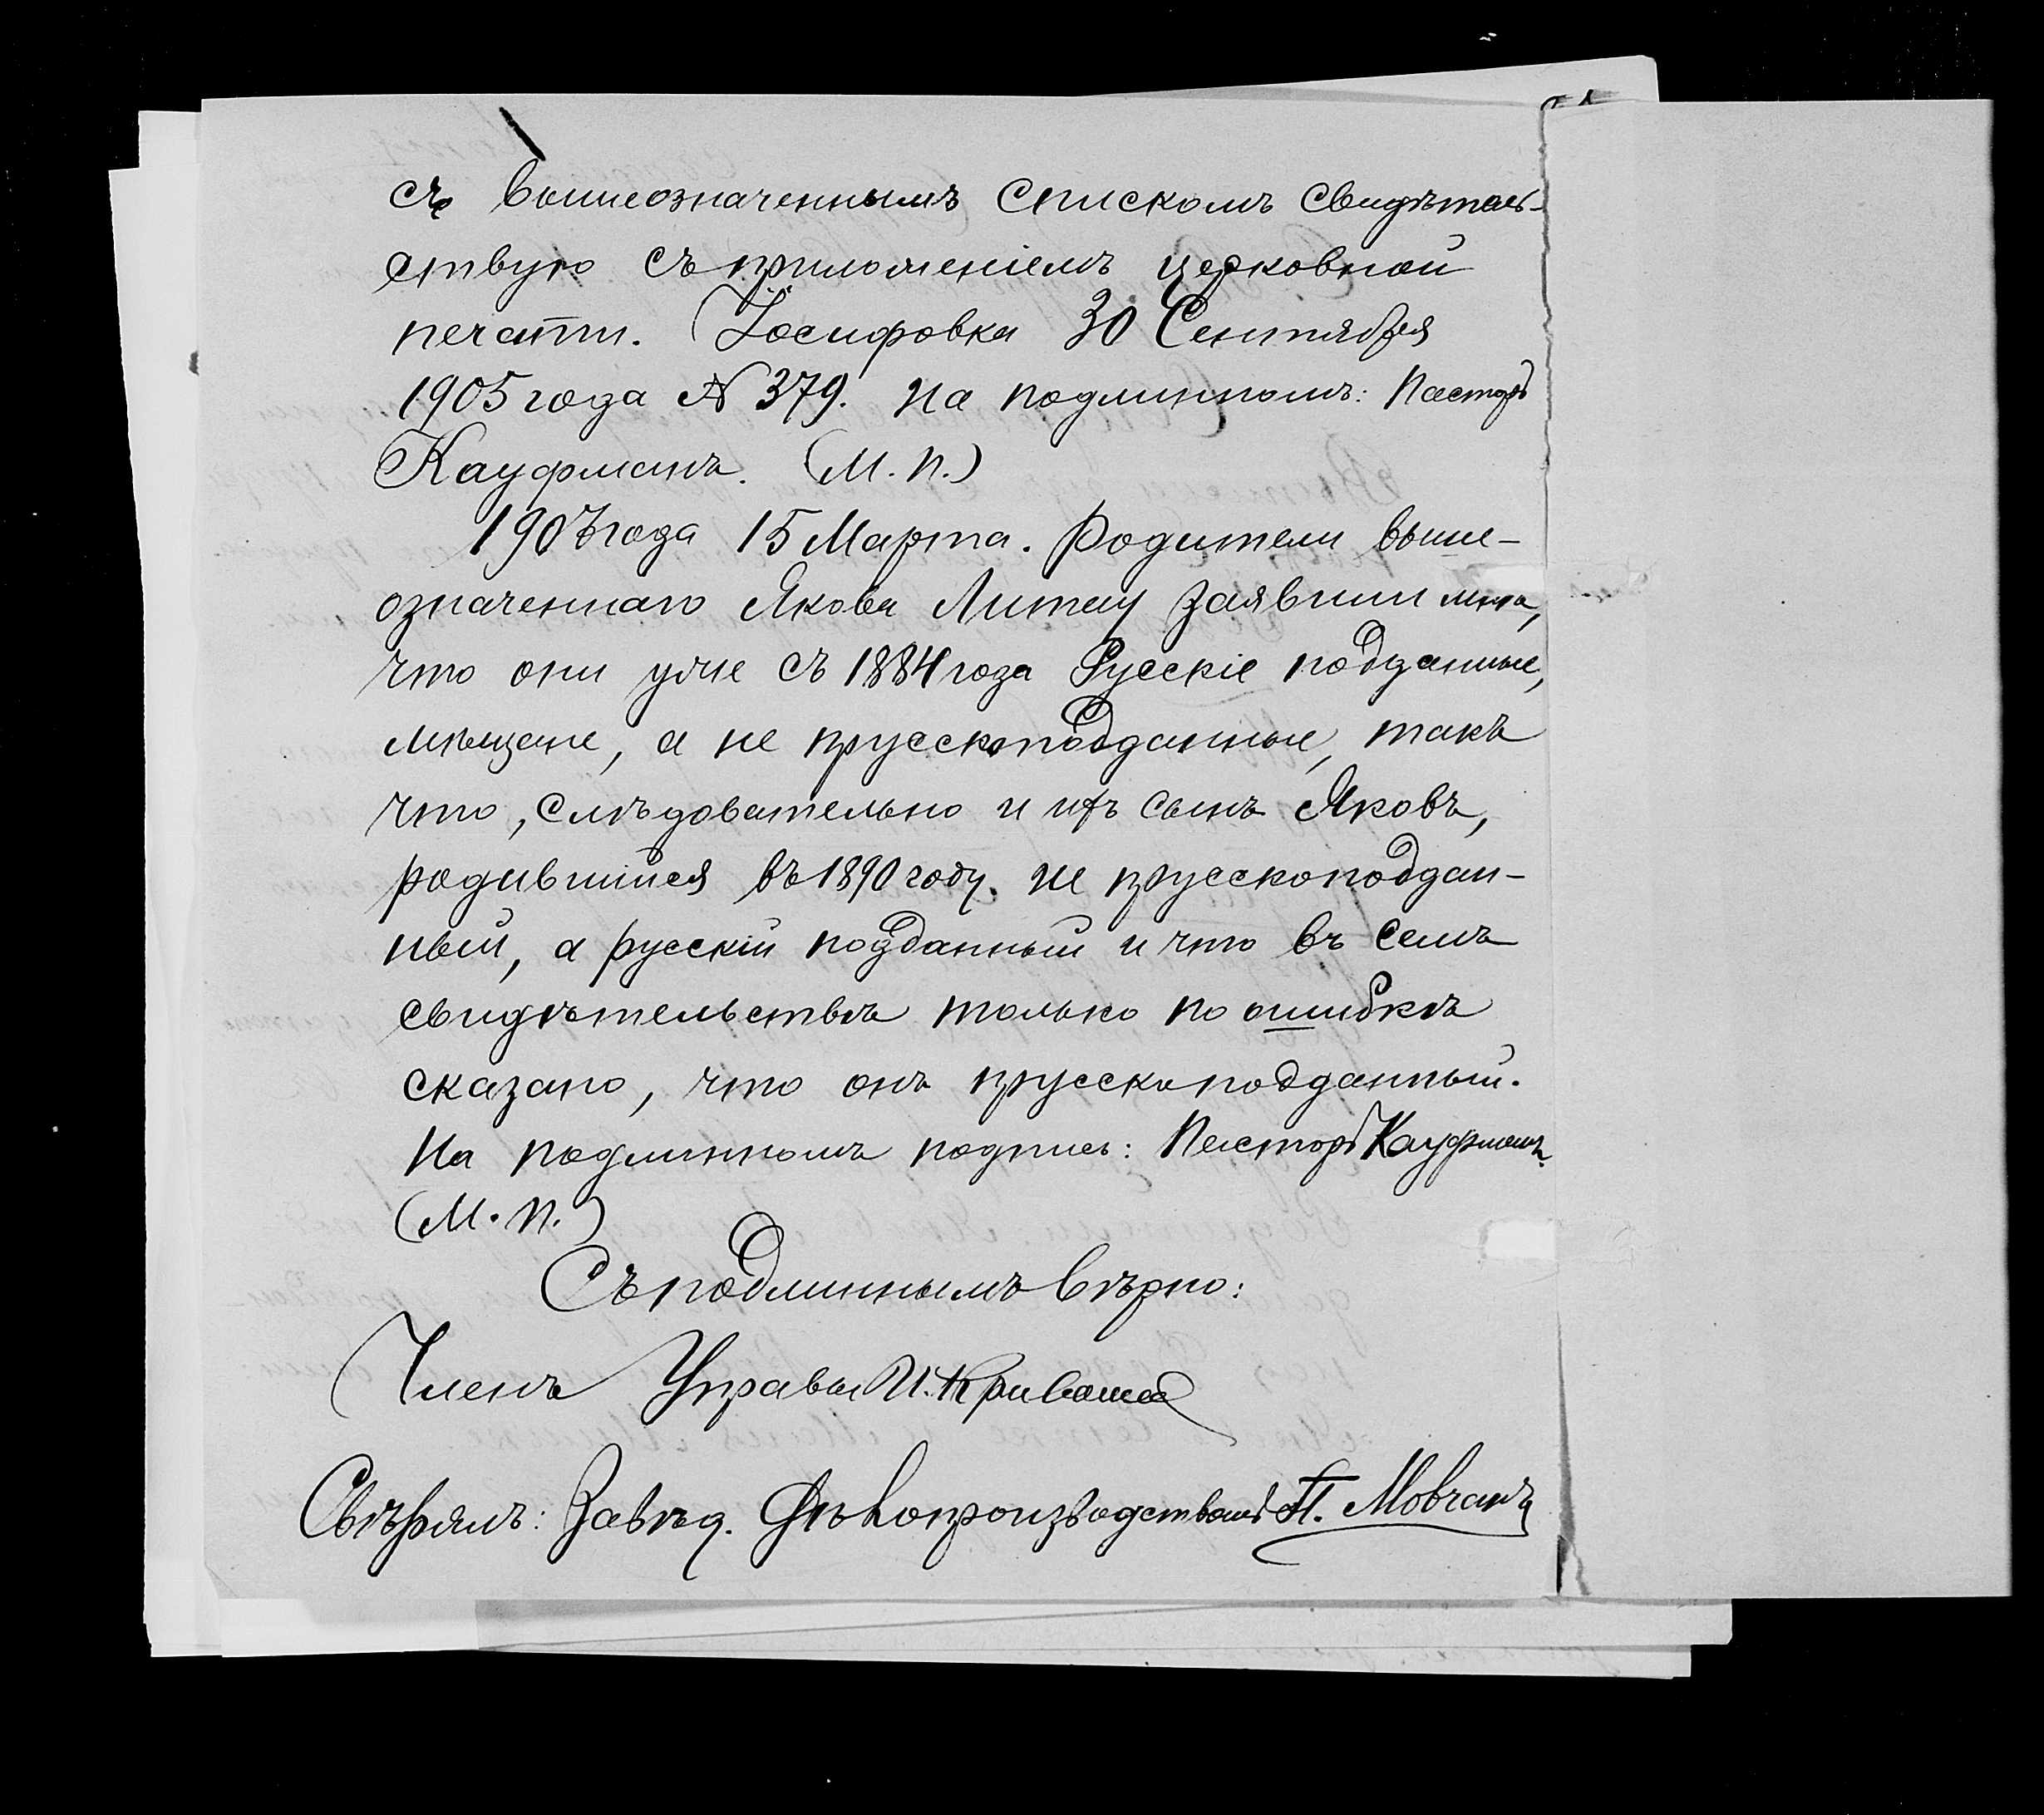 съ вышеозначеннымъ спискомъ свидѣтель-
ствую съ приложеніемъ церковной
печати. Іосифовка 30 Сентября
1905 года № 379. На подлинномъ: Пасторъ
Кауфманъ. (М. П.)
1907 года 15 Марта. Родители выше-
означеннаго Якова Литау заявили мнѣ,
что они уже съ 1884 года Русскіе подданные,
мѣщане, а не прусскоподданные, такъ
что, слѣдовательно и ихъ сынъ Яковъ,
родившійся въ 1890 году. не прусскоподдан-
ный, а русскій подданный и что въ семъ
свидѣтельствѣ только по ошибкѣ
сказано, что онъ прусскоподданный.
На подлинномъ подпись: Пасторъ Кауфманъ.
(М. П.)
Съ подлиннымъ вѣрно:
Членъ Управы И.
Свѣрялъ: Завѣд. Дѣлопроизводствомъ П. Мовчанъ